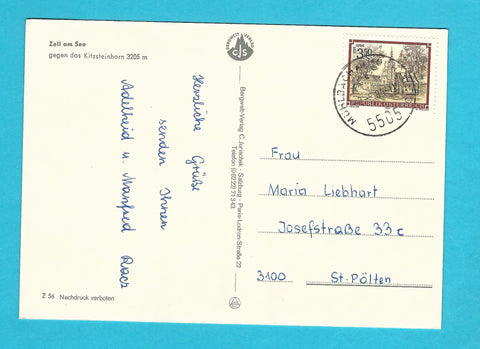 Zell am See
gegen das Kitzsteinhorn 3205 m
Herzliche Grüße
senden Ihnen
Adelheid u. Manfred Racz
Z 56 Nachdruck verboten
BERGWELT VERLAG
CJS
Bergwelt-Verlag C. Jurischek · Salzburg · Paris-Lodron-Straße 22
Telefon (06222) 71343
3.50
REPUBLIK ÖSTERREICH
MÜHLBACH AM
5505
Frau
Maria Liebhart
Josefstraße 33c
3100 St. Pölten